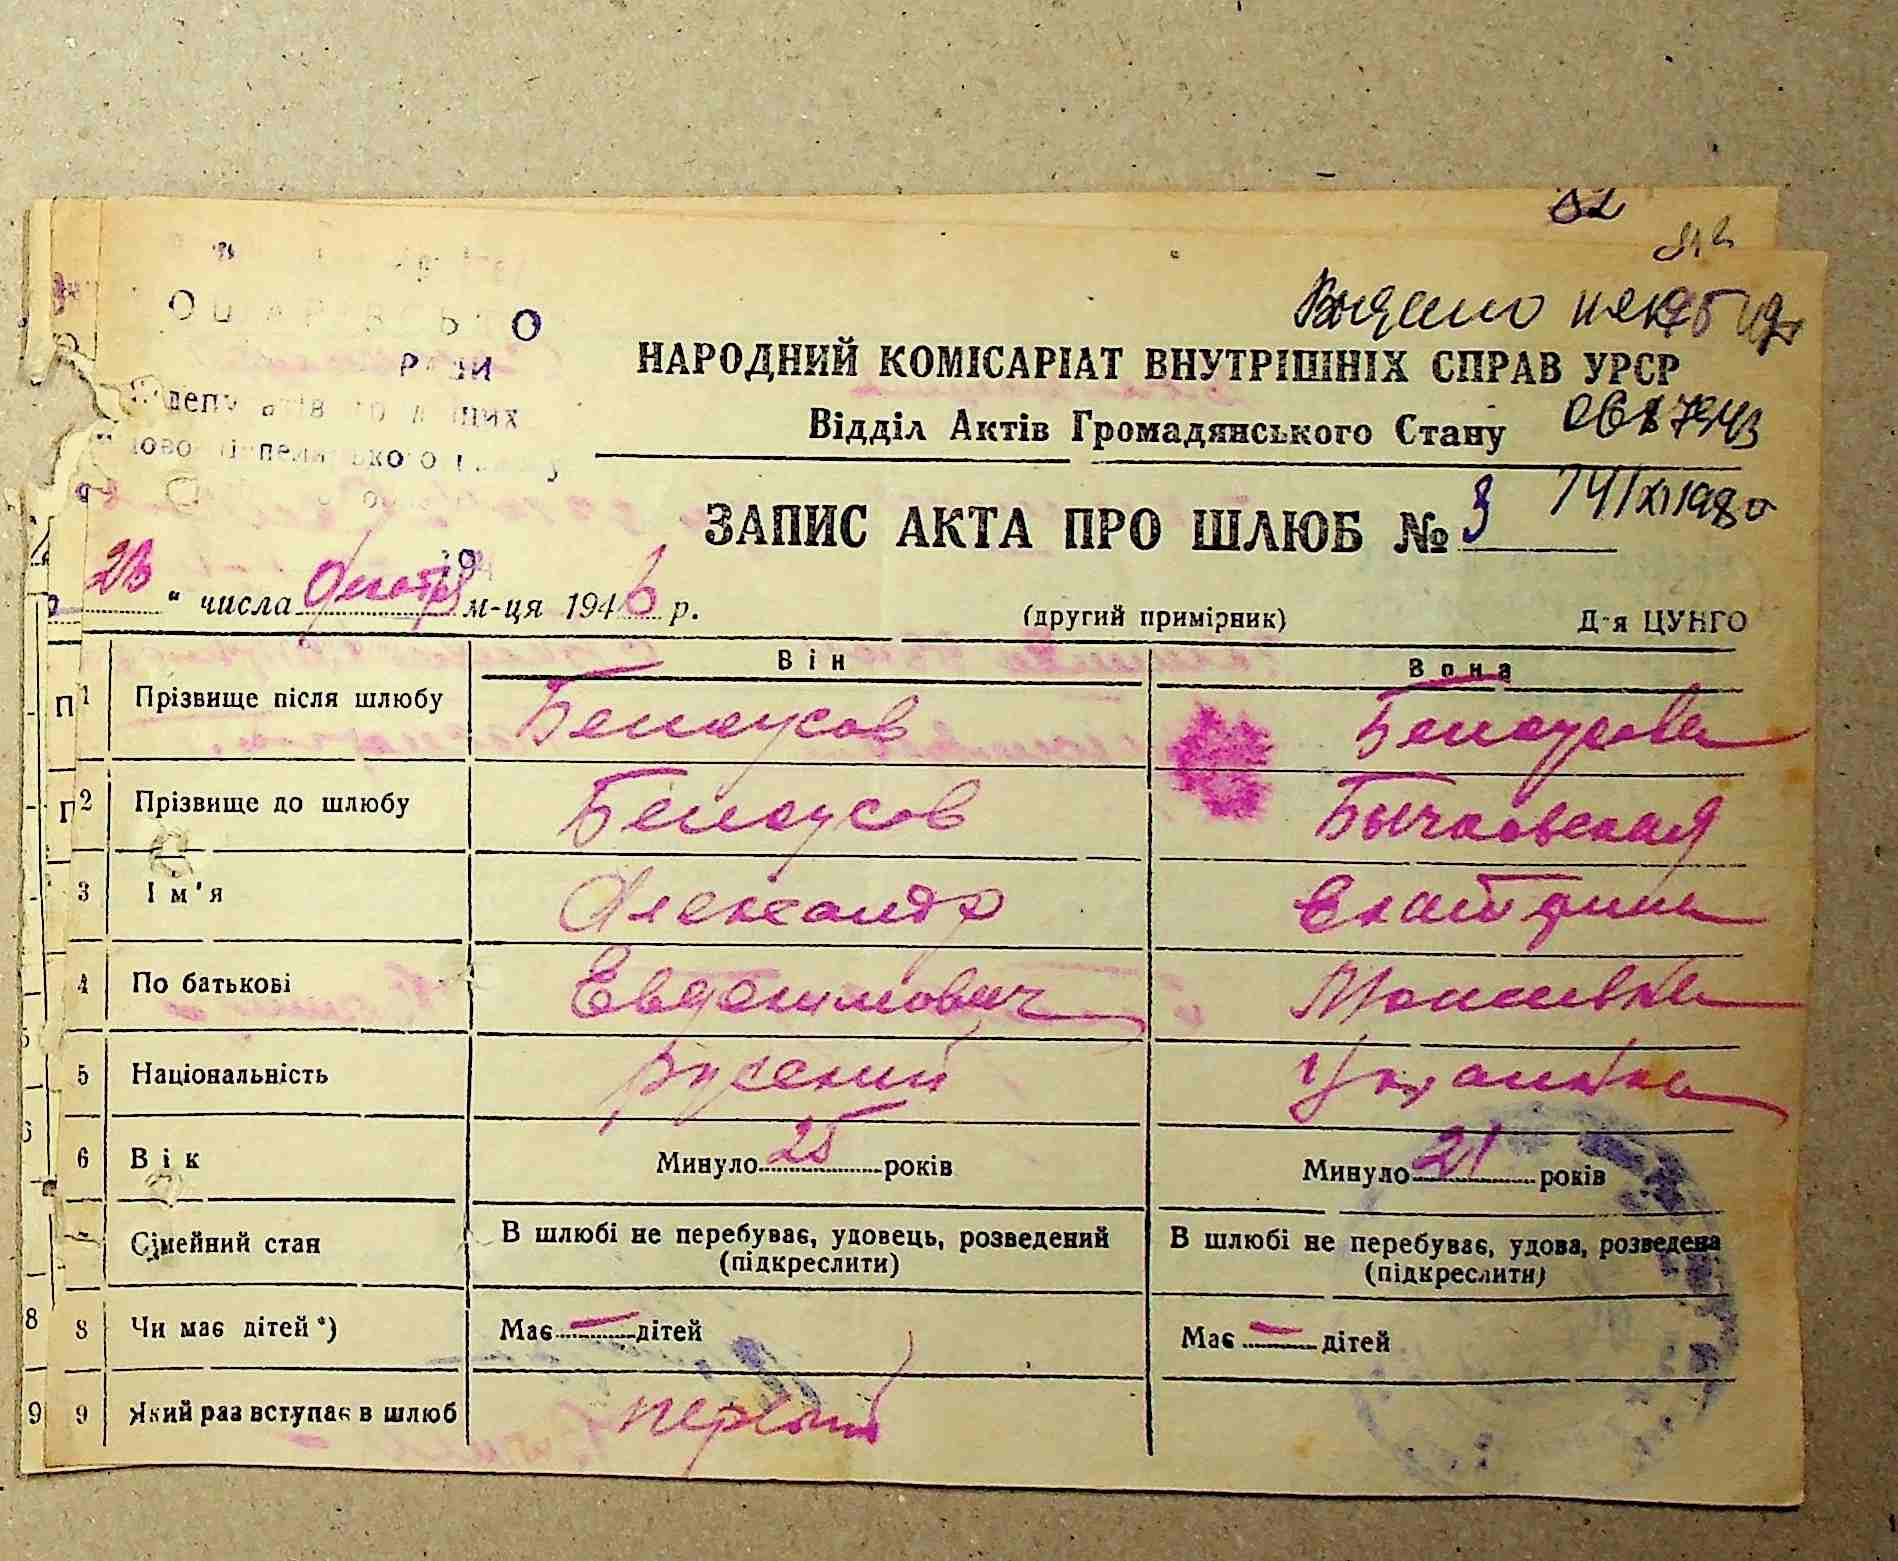 52
НАРОДНИЙ КОМІСАРІАТ ВНУТРІШНІХ СПРАВ УРСР
Відділ Актів Громадянського Стану
ЗАПИС АКТА ПРО ШЛЮБ № 3
" числа м-ця 1946 р.
(другий примірник) Д-я ЦУНГО
Він Вона
1 Прізвище після шлюбу Белоусов Белоусова
2 Прізвище до шлюбу Белоусов Бычковская
3 Ім'я Александр Екатерина
4 По батькові Евдокимович Моисеевна
5 Національність русский Украинка
6 Вік Минуло 25 років Минуло 21 років
Сімейний стан В шлюбі не перебуває, удовець, розведений (підкреслити) В шлюбі не перебуває, удова, розведена (підкреслити)
8 8 Чи має дітей*) Має — дітей Має — дітей
9 9 Який раз вступає в шлюб первый